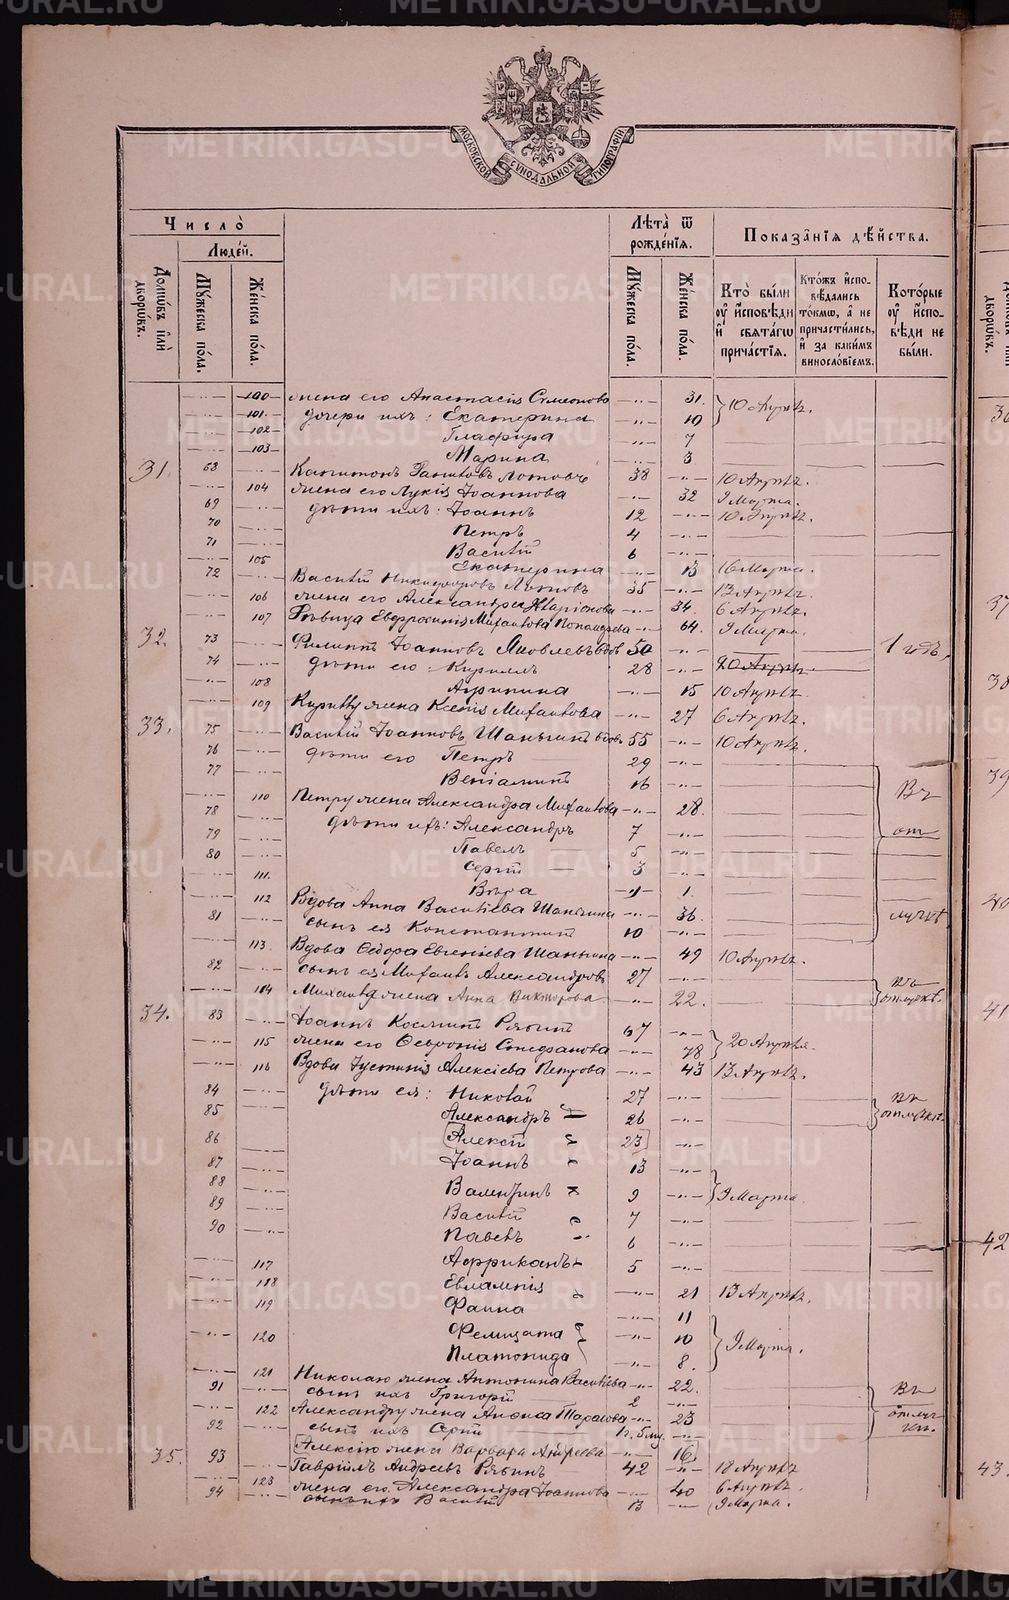 МОСКОВСКОЙ СѴНОДАЛЬНОЙ ТИПОГРАФІИ
Число̀
Людей.
Домωвъ или дворωвъ.
Мꙋжеска пола.
Женска пола.
Лѣта ѿ рожденїѧ.
Мꙋжеска пола.
Женска пола.
Показанїѧ дѣйства.
Кто были ᲂу исповѣди и свѧтагω причастїѧ.
Ктожъ исповѣдались токмω, а не причастились, и за какимъ винословїемъ.
Которые ᲂу исповѣди не были.
100 жена его Анастасія Симеонова 31. 10 Апрѣл.
101. дочери ихъ: Екатерина 10
102 Глафира 7
103 Марина 3
31. 68 Капитонъ 38 10 Апрѣл.
104 жена его Лукія Іоаннова 32 9 Марта.
69 дѣти ихъ: Іоаннъ 12 10 Апрѣл.
70 Петръ 4
71 Василій 6
105 Екатерина 13 16 Марта.
72 Василій Никифоровъ 35 13 Апрѣл.
106 жена его Александра Иларіонова 34. 6 Апрѣл.
107 Евфросинія Михаилова 64. 9 Марта.
32. 73 Филиппъ Іоанновъ Яковлевъ вдов 50 1 годъ.
74 дѣти его: Кириллъ 28 20 Апрѣл.
108 Агрипина 15 10 Апрѣл.
109 Кириллу жена Ксенія Михаилова 27 6 Апрѣл.
33. 75 Василій Іоанновъ Шаньгинъ вдов. 55 10 Апрѣл.
76 дѣти его Петръ 29
77 Веніаминъ 16 Въ от лучкѣ
110 Петру жена Александра Михаилова 28.
78 дѣти ихъ: Александръ 7
79 Павелъ 5
80 Сергій 3
111. Вѣра 1
112 Вдова Анна Василіева Шаньгина 36.
81 сынъ ея Константинъ 10
113. Вдова Ѳедора Евгеніева Шаньгина 49 10 Апрѣл.
82 сынъ ея Михаилъ Александровъ 27 въ отлучкѣ.
114 Михаилу жена Анна Викторова 22.
34. 83 Іоаннъ Косминъ Рябинъ 67 20 Апрѣля.
115 жена его Февронія Стефанова 78
116 Вдова Іустинія Алексіева Петрова 43 13 Апрѣл.
84 дѣти ея: Николай 27 въ отлучкѣ.
85 Александръ 26
86 [Алексій 23]
87 Іоаннъ 13 9 Марта
88 Валентинъ 9
89 Василій 7
90 Павелъ 6
Африканъ 5
117 Евлампія 21 13 Апрѣл.
118 Фаина 11 9 Марта.
119 Фелицата 10
120 Платонида 8.
121 Николаю жена Антонина Василіева 22. Въ отлучкѣ.
91 сынъ ихъ Григорій 2
122 Александру жена Анѳиса Тарасова 23
92 сынъ ихъ Сергій 5 м.
[Алексію жена Варвара Андреева 16]
35. 93 Гавріилъ Андреевъ Рябинъ 42 18 Апрѣл
123 жена его Александра Іоаннова 40 6 Апрѣл.
94 сынъ ихъ Василій 13 9 Марта.
36
37
38
39
40
41
42
43.
METRIKI.GASO-URAL.RU